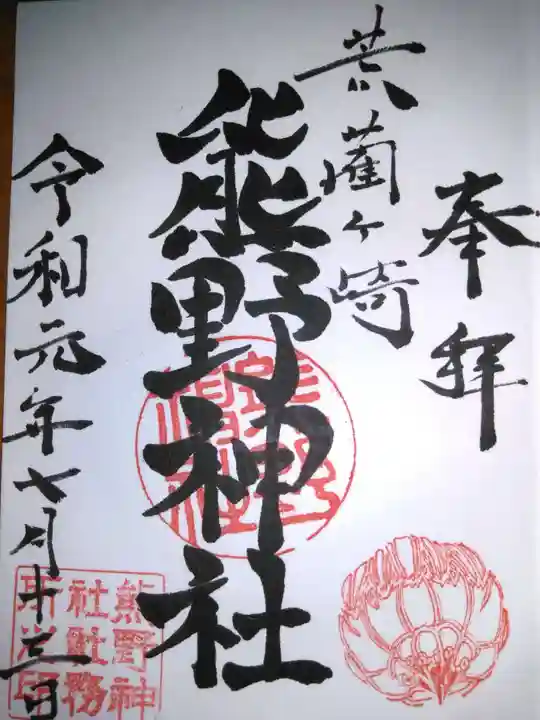 奉拝
荒藺ヶ崎
熊野神社
令和元年七月十三日
熊野神
社社務
所之印